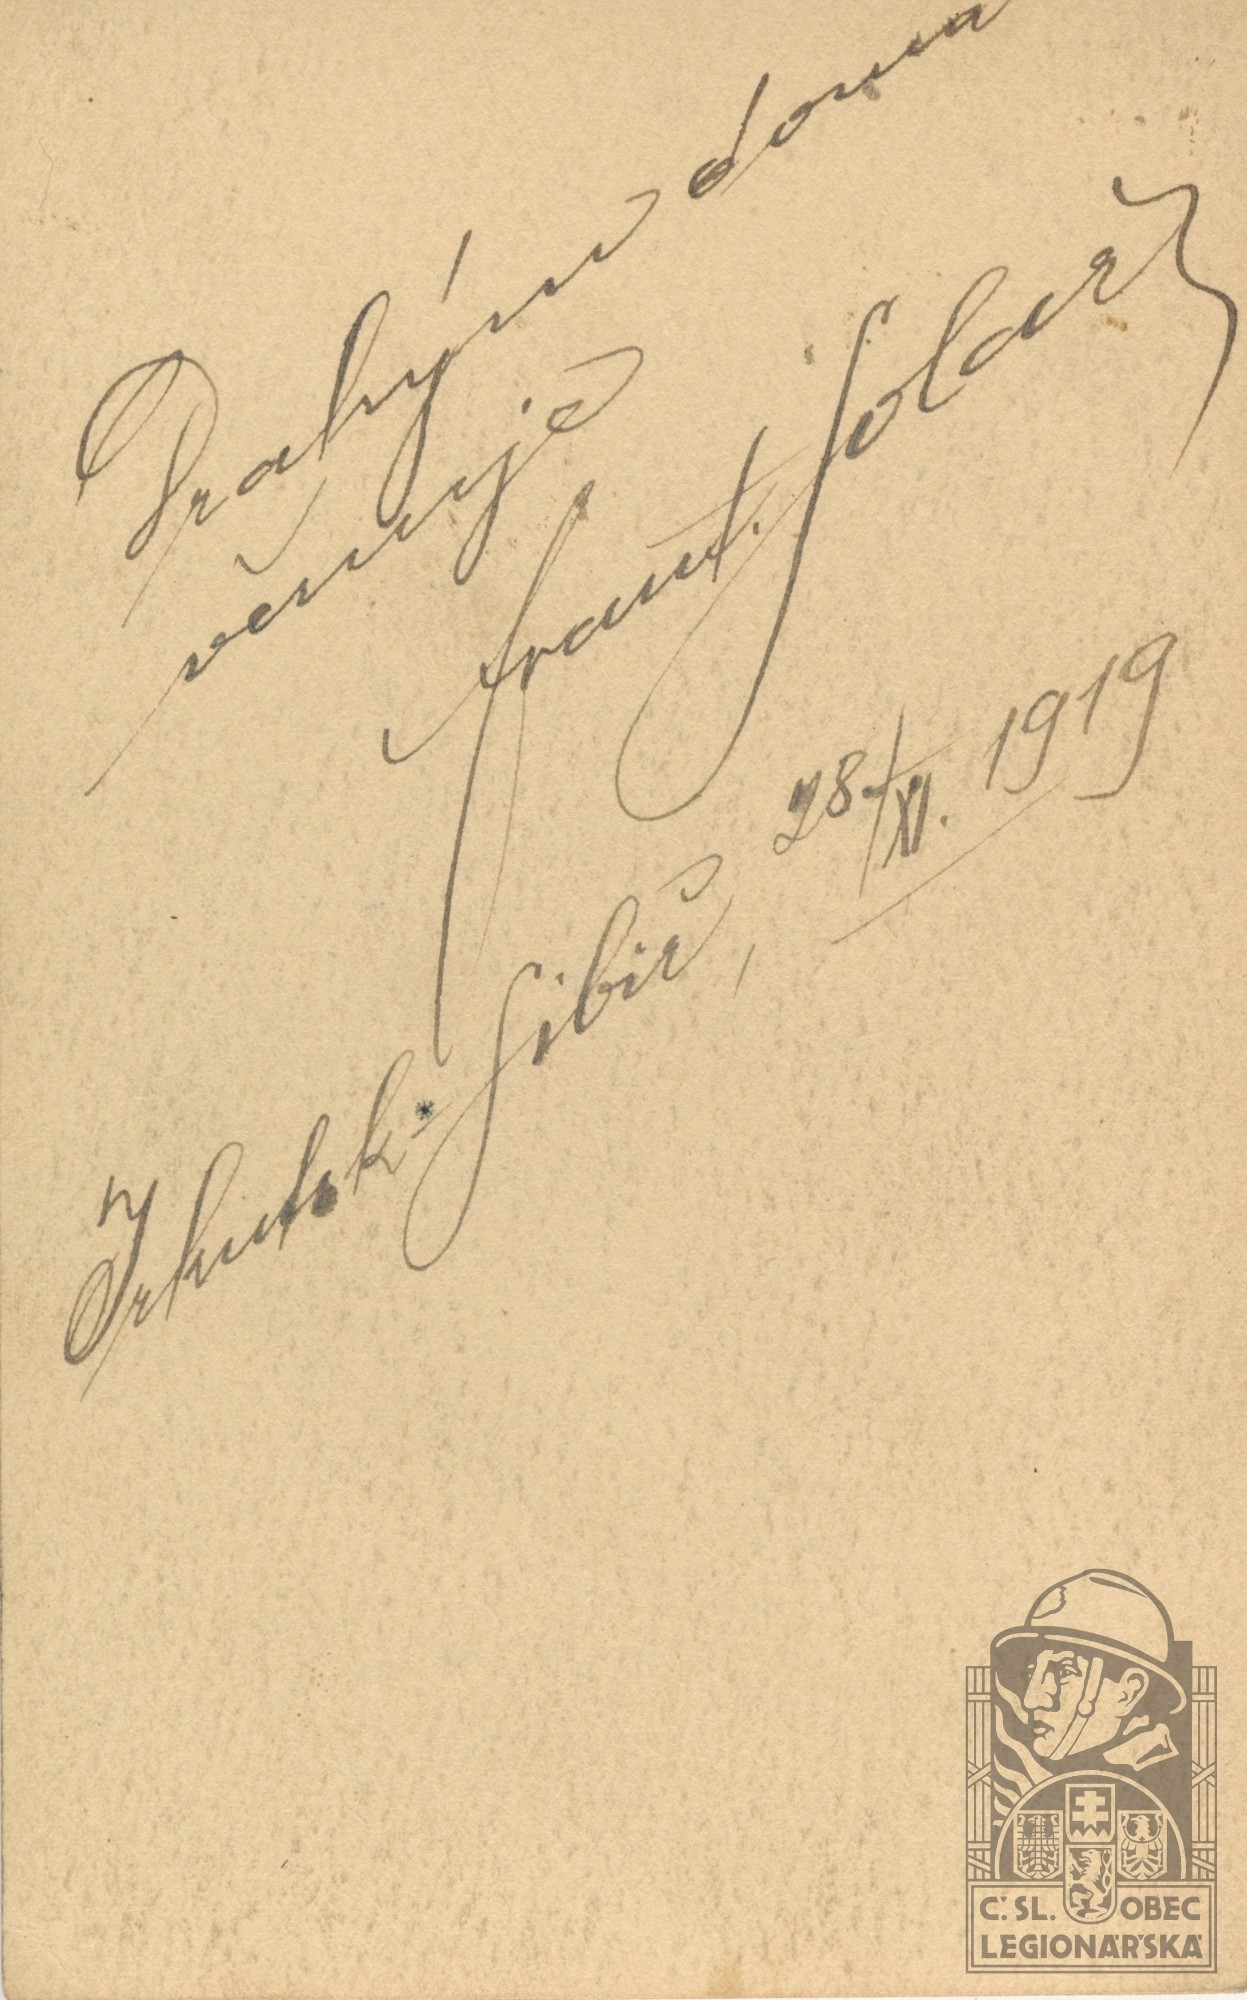 Drahým doma
věnuje
Frant. Solař
28/XI. 1919
Irkutsk - Sibiř,
Č.SL. OBEC
LEGIONÁŘSKÁ